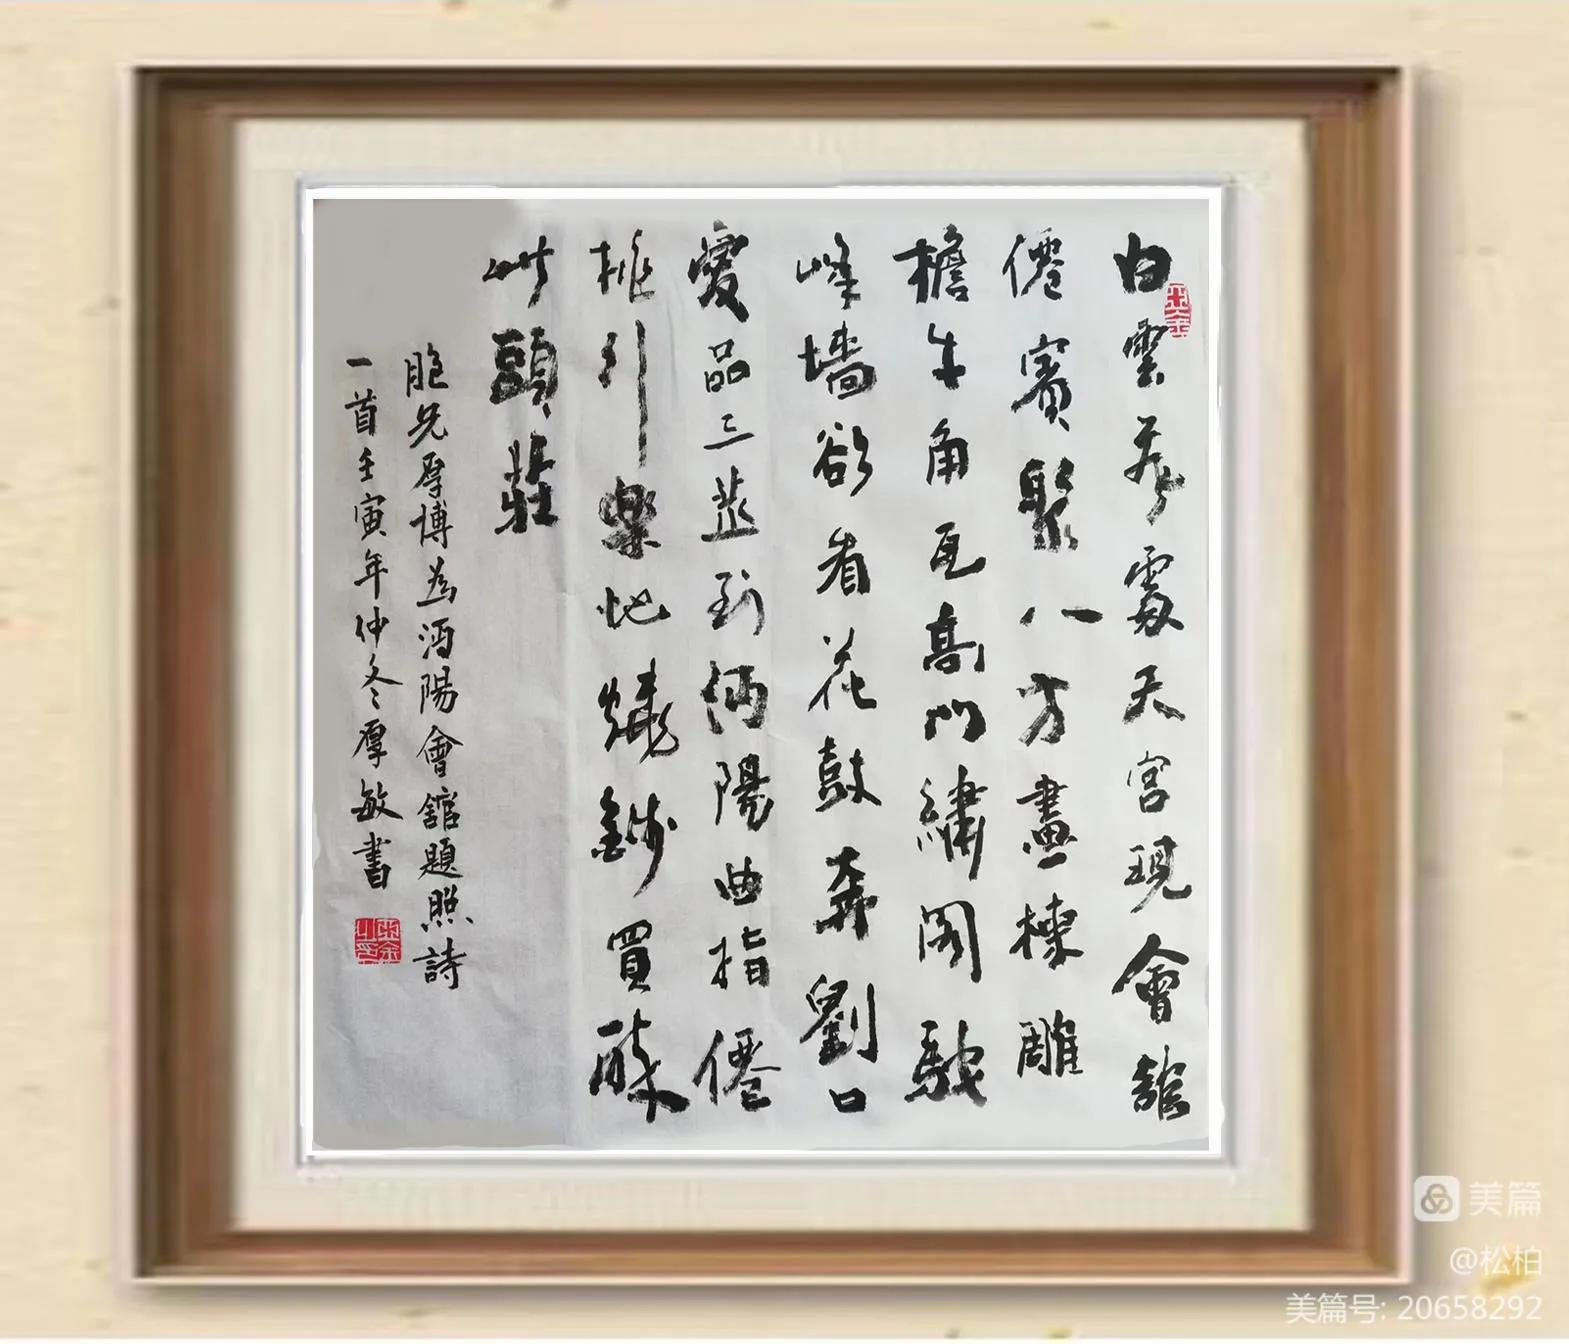 白雲深處天宮現會館
僊賓聚八方畫棟雕
檐牛角瓦高門繡閣馳
峰墙欲看花鼓奔劉口
愛品三蒸到沔陽曲指僊
桃引樂地燒錢買醉
此頭莊
胞兄厚博為沔陽會館題照詩
一首壬寅年仲冬厚敏書
美篇
@松柏
美篇号: 20658292